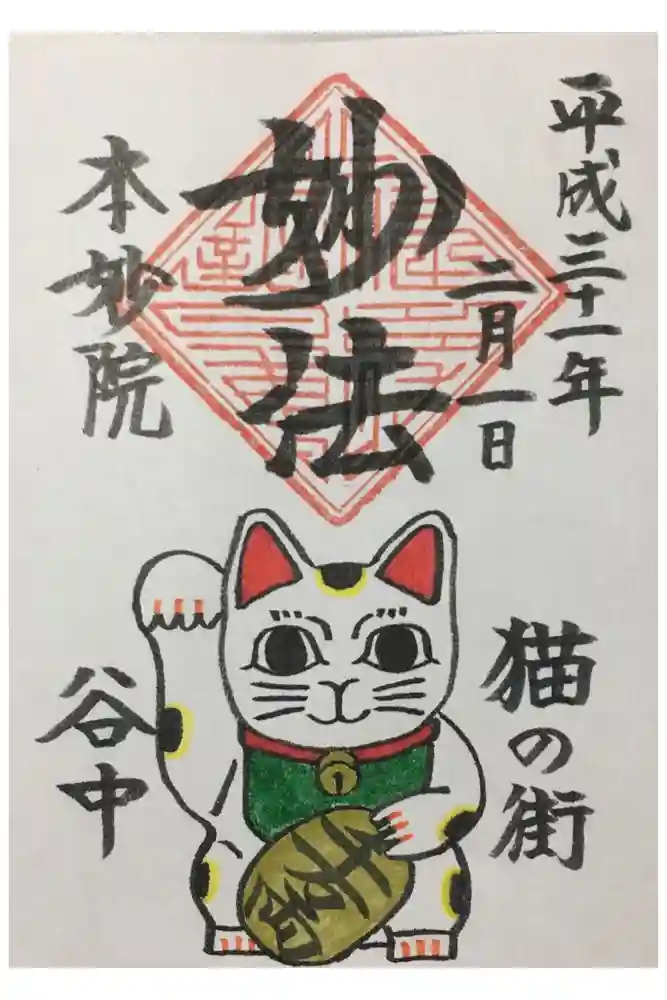 平成三十一年
二月一日
妙法
本妙院
猫の街
谷中
千万両